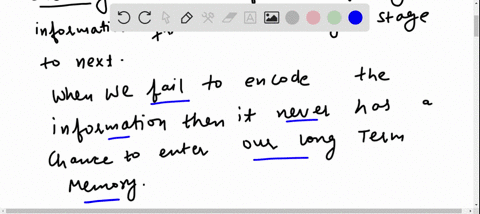 informati stage
to next.
When we fail to encode the
information then it never has a
chance to enter our long Term
Memory.